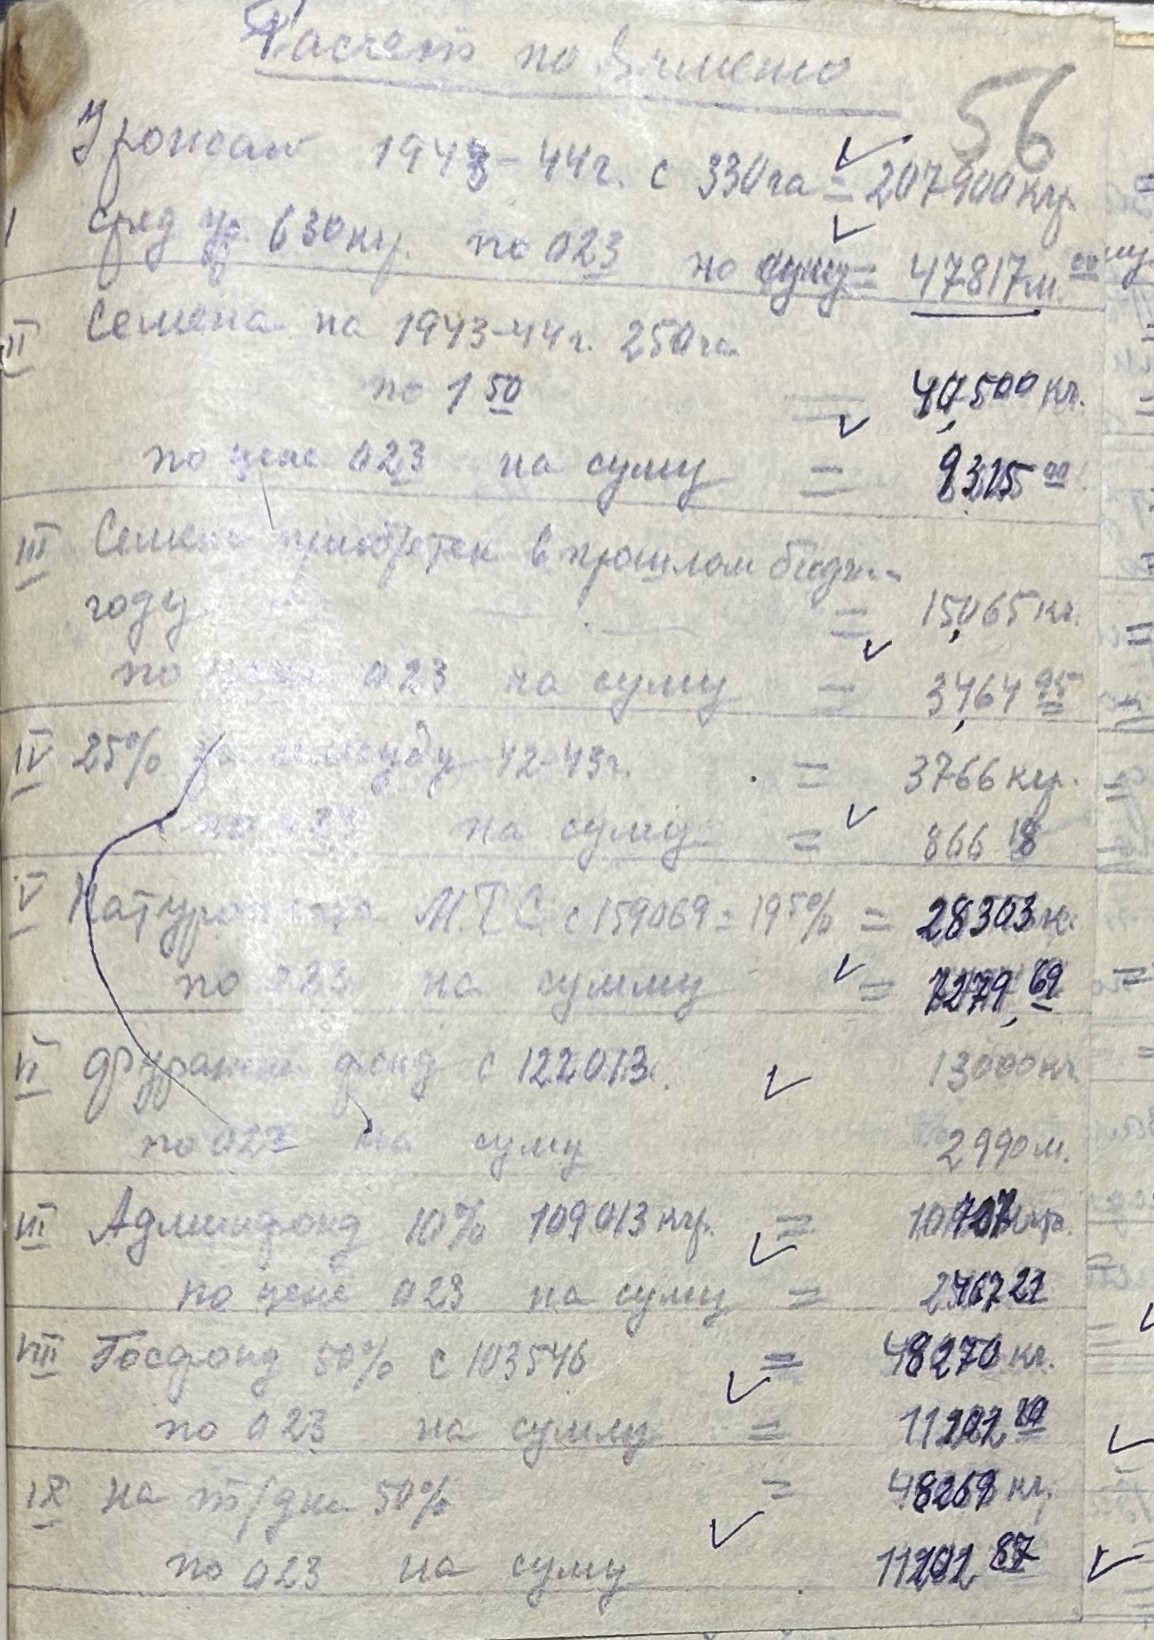 Расчет по Ячменю
56
Урожай 1943-44г. с 330га = 207900 кгр.
I сред ур. 630 кг. по 023 на сумму = 47817м. 00
II Семена на 1943-44г. 250га
по 1 50 = 40,500 кг.
по цене 023 на сумму = 9315 00
III Семена приобретен в прошлом бюдж.
году = 15,065 кг.
по цене 023 на сумму = 3,464 95
IV 25% за ссуду 42-43г. = 3766 кгр.
по 023 на сумму = 866 18
V Натуроплата М.Т.С. с 159069 = 195% = 28303 к.
по 023 на сумму = 7279, 69
VI Фуражн фонд с 122013. 13000 кг
по 023 на сумму 2990м.
VII Админфонд 10% 109013 кгр. = 10727 кгр.
по цене 023 на сумму = 2467 21
VIII Госфонд 50% с 103546 = 48270 кг.
по 023 на сумму = 11202 10
IX на т/дни 50% = 48269 кг.
по 023 на сумму 11202 87